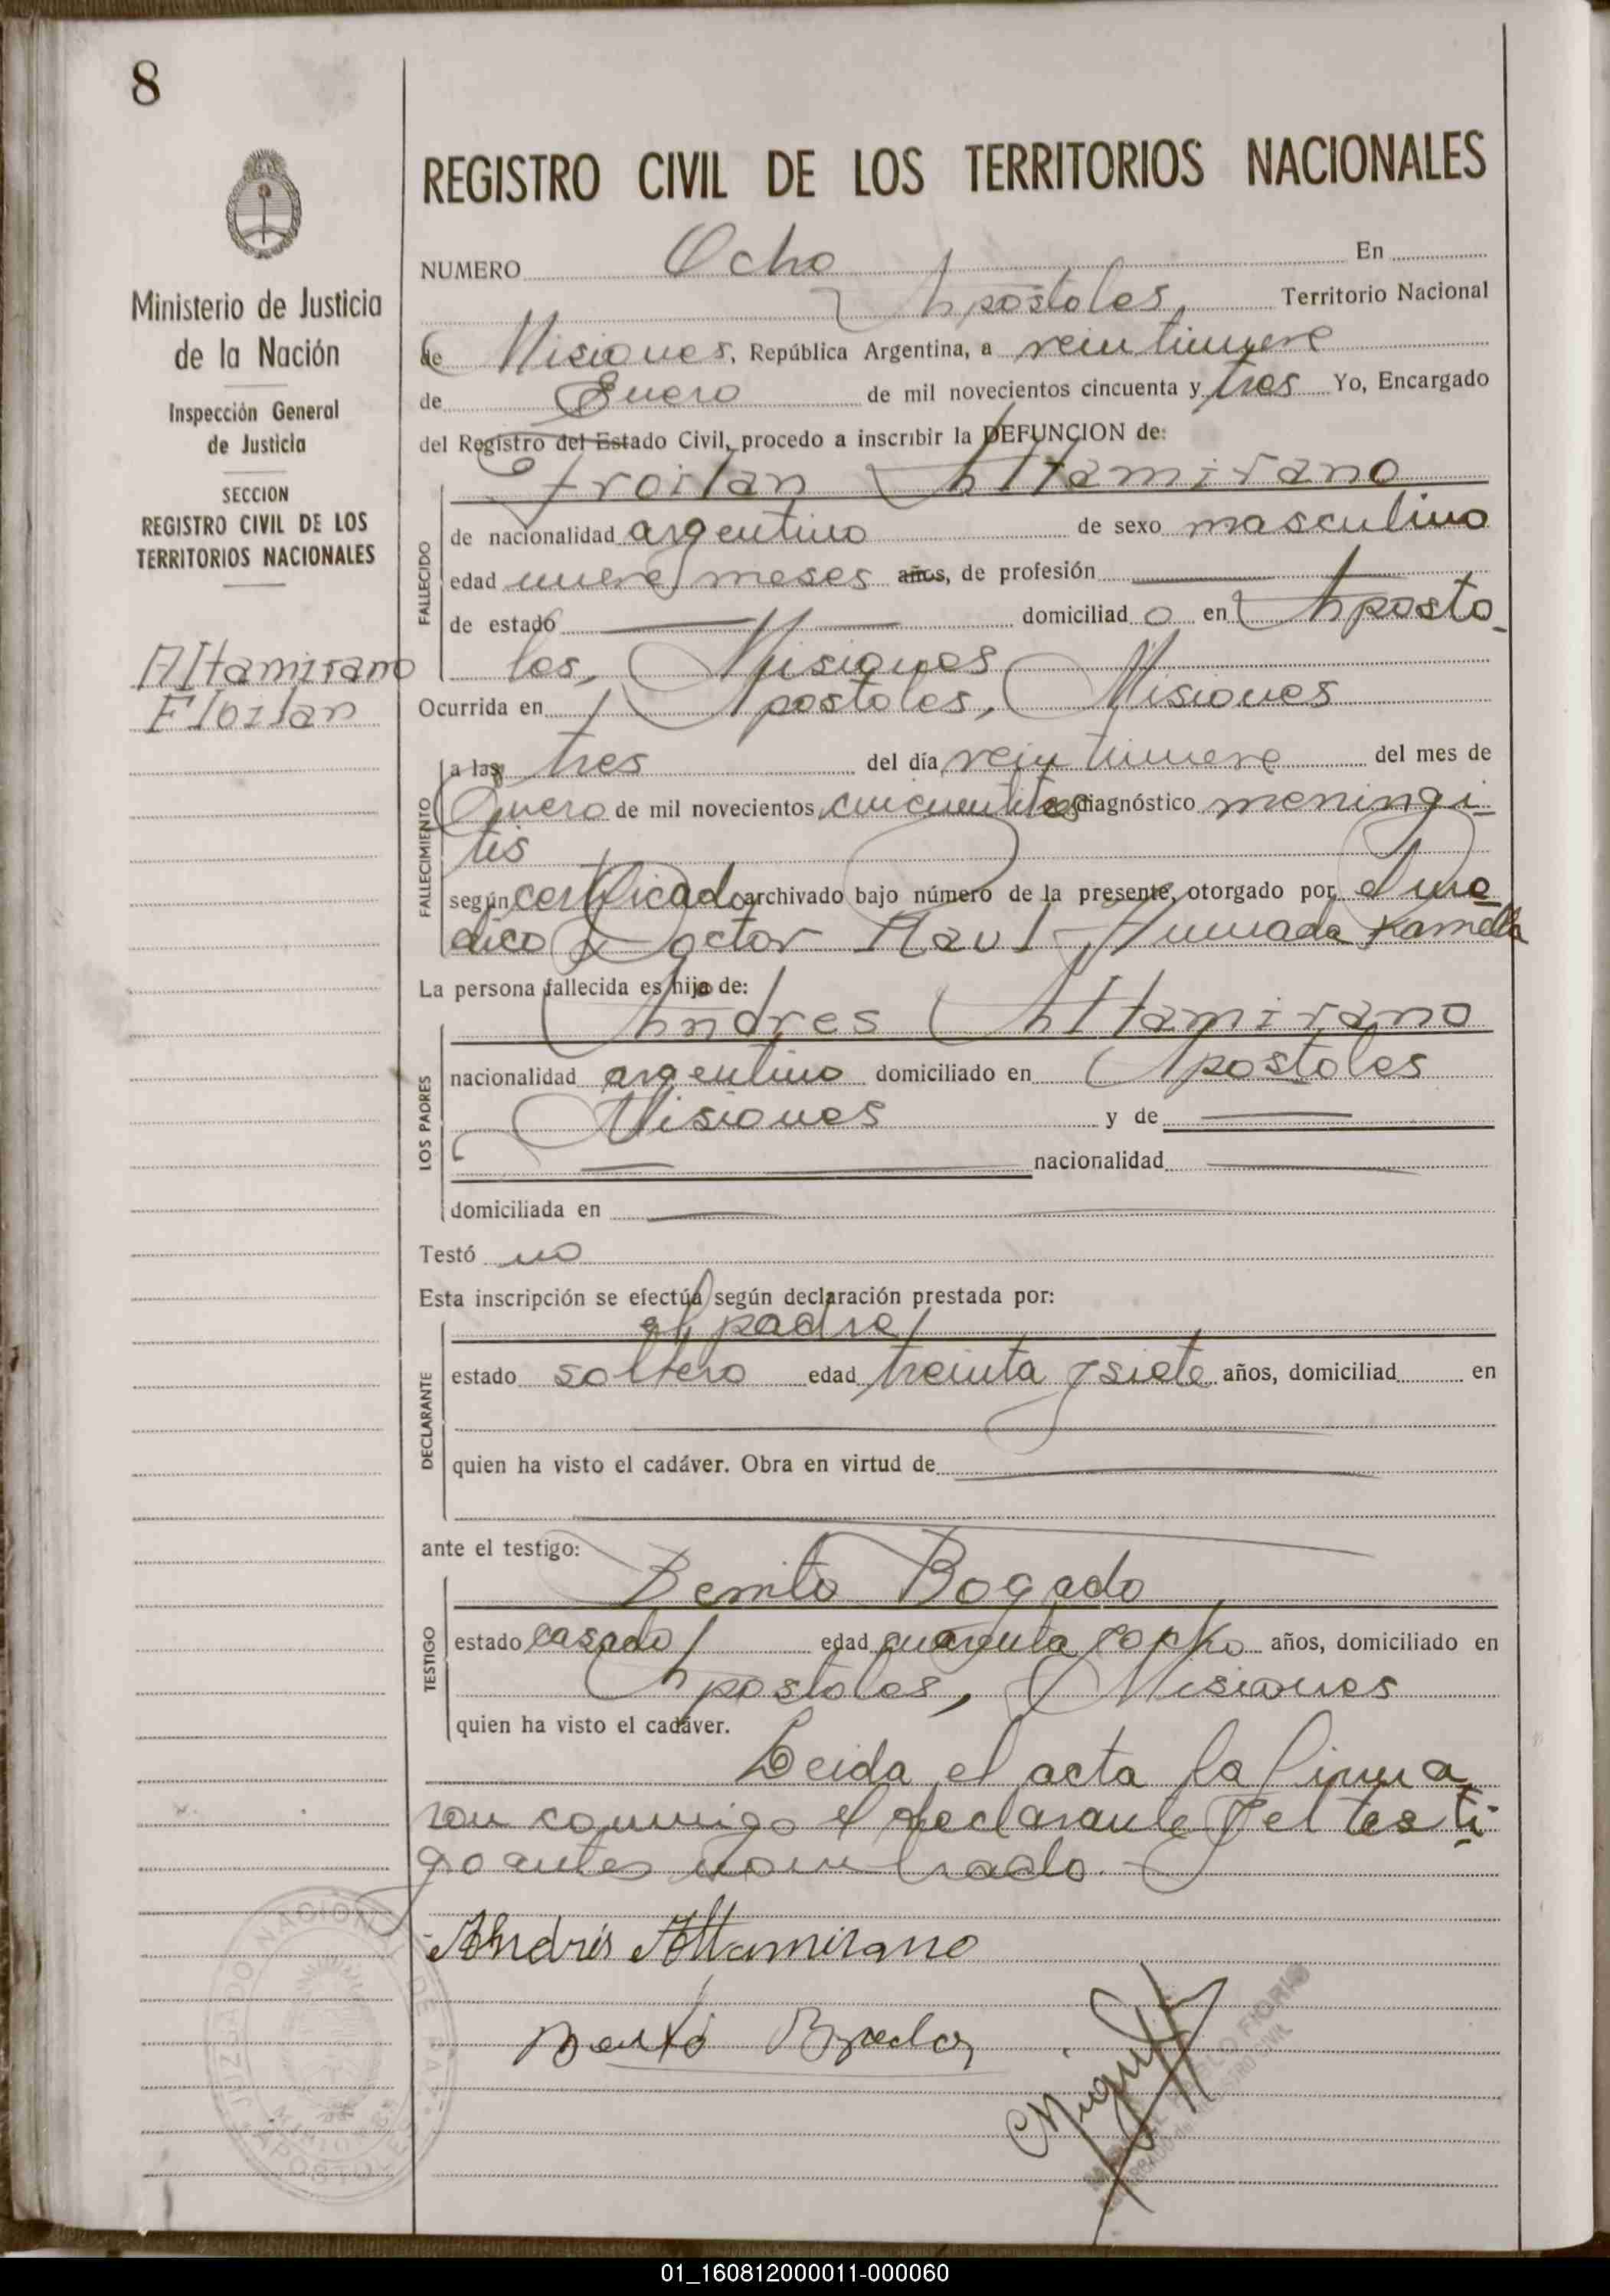 8
REGISTRO CIVIL DE LOS TERRITORIOS NACIONALES
Ministerio de Justicia
de la Nación
Inspección General
de Justicia
SECCION
REGISTRO CIVIL DE LOS
TERRITORIOS NACIONALES
Altamirano
Floilan
NUMERO Ocho En
Apostoles Territorio Nacional
de Misiones, República Argentina, a veintinueve
de Enero de mil novecientos cincuenta y tres Yo, Encargado
del Registro del Estado Civil, procedo a inscribir la DEFUNCION de:
Froilan Altamirano
FALLECIDO
de nacionalidad argentino de sexo masculino
edad nueve meses años, de profesión
de estado domiciliad o en Aposto
les, Misiones
Ocurrida en Apostoles, Misiones
FALLECIMIENTO
a las tres del día veintinueve del mes de
Enero de mil novecientos cincuentitres diagnóstico meningi
tis
según certificado archivado bajo número de la presente, otorgado por el me
dico Doctor Raul Ahumada Kamella
La persona fallecida es hijo de:
LOS PADRES
Andres Altamirano
nacionalidad argentino domiciliado en Apostoles
Misiones y de
nacionalidad
domiciliada en
Testó no
Esta inscripción se efectúa según declaración prestada por:
DECLARANTE
el padre
estado soltero edad treinta y siete años, domiciliad en
quien ha visto el cadáver. Obra en virtud de
ante el testigo:
TESTIGO
Benito Bogado
estado casado edad cuarenta y ocho años, domiciliado en
Apostoles, Misiones
quien ha visto el cadáver.
Leida el acta la firma
ron conmigo el declarante y el testi
go antes nombrado.-
Andrés Altamirano
Benito Bogado
Miguel
REGISTRO CIVIL
01_160812000011-000060